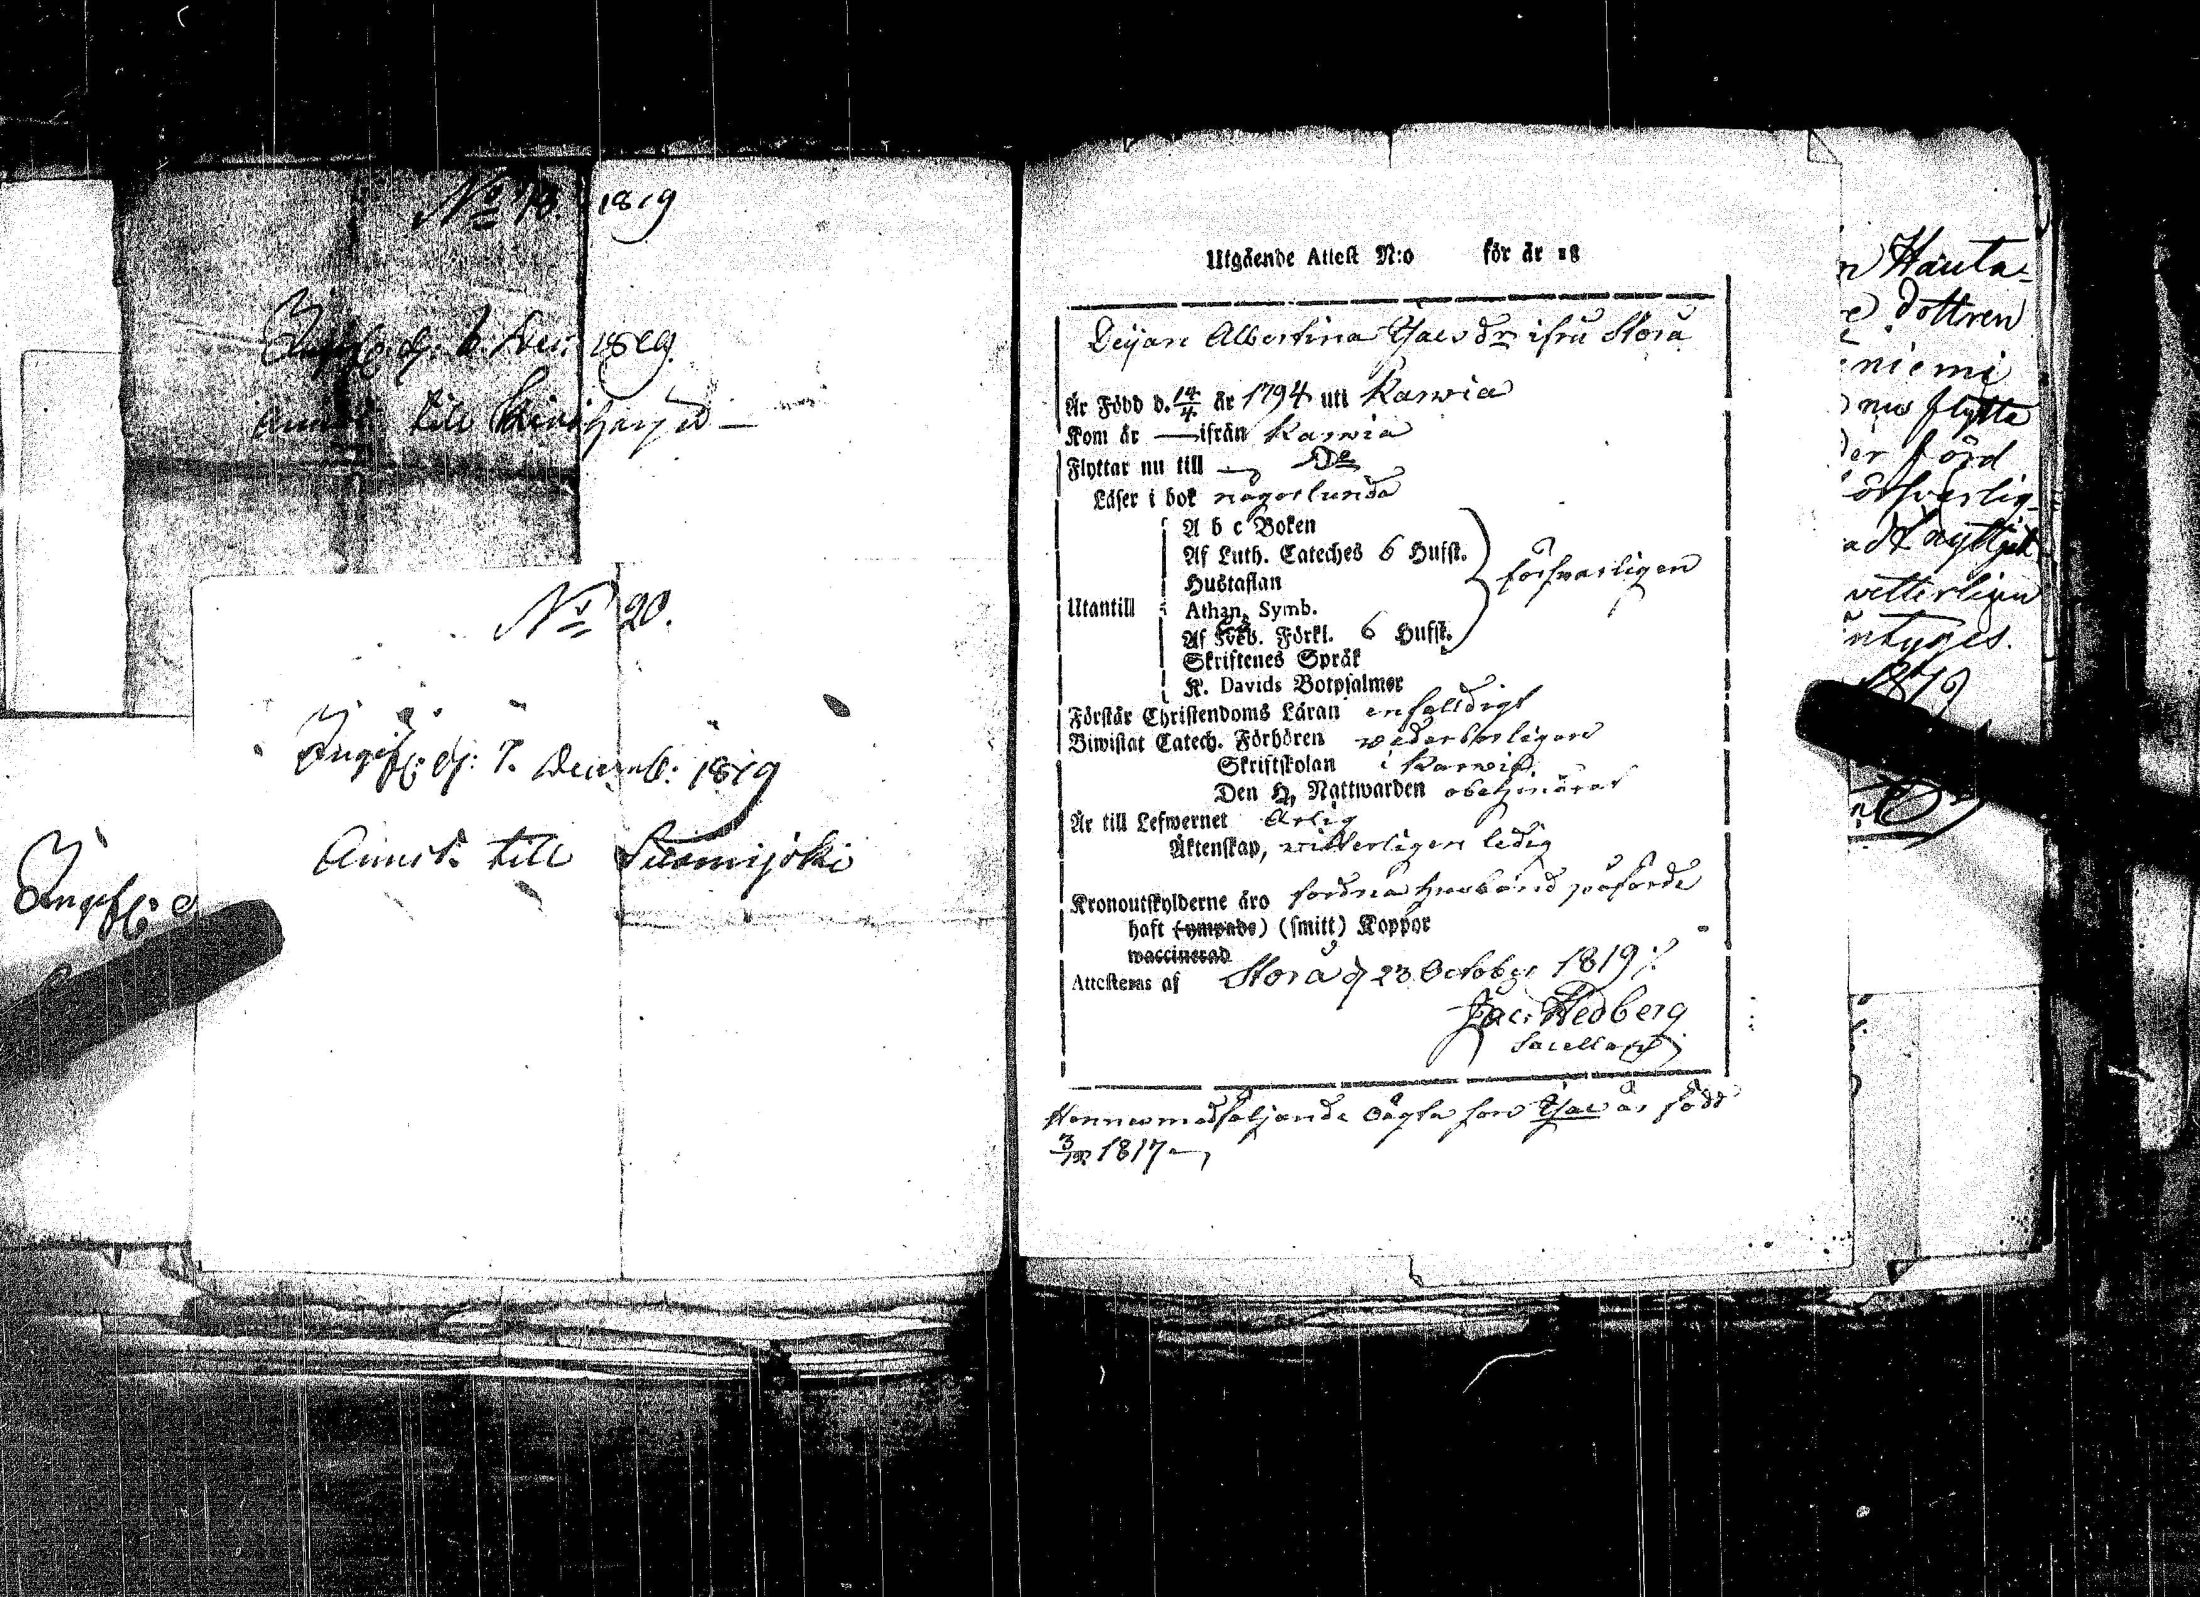 No 18. 1819
Ingifv. d. 6 Dec. 1819.
till
No 20.
Ingifv. d: 7. Decemb: 1819
Anmt. till Suomijoki
Ingifv:
Utgående Attest N:o för år 18
Deijan Albertina Isacsdr ifrån Storå
Är Född d. 14/4 år 1794 uti Karvia
Kom år — ifrån Karvia
Flyttar nu till — Do
Läser i bok någorlunda
A b c Boken
Af Luth. Cateches 6 Hufst.
Hustaflan
försvarligen
Utantill
Athan. Symb.
Af Sveb. Förkl. 6 Hufst.
Skriftenes Språk
K. Davids Botpsalmer
Förstår Christendoms Läran enfaldigt
Biwistat Catech. Förhören wederbörligen
Skriftskolan i Karvia
Den H. Nattwarden obehindrat
Är till Lefwernet Ärlig
Äktenskap, witterligen ledig
Kronoutskylderne äro fordna husbond påförde
haft (ympade) (smitt) Koppor
waccinerad
Attesteras af Storå d 23 October 1819
Jac. Hedberg
Sacellan
Hennes medföljande oägta son Isac är född
3/12 1817
n Hauta-
e dottren
niemi
nu flytta
der förd
örsvarlig-
adt nyttjat
vetterligen
ntyges.
1819